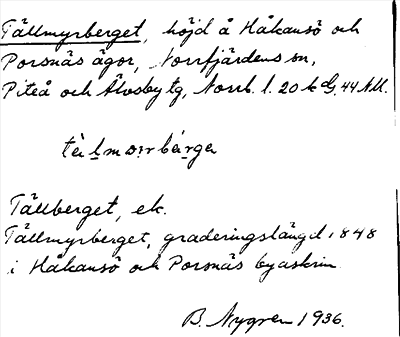 Tällmyrberget, höjd å Håkansö och
Porsnäs ägor, Norrfjärdens sn,
Piteå och Älvsby tg, Norrb. l. 20 k 44
Tällberget, ek.
Tällmyrberget, graderingslängd 1848
i Håkansö och Porsnäs byaskrin
B. Nygren 1936.